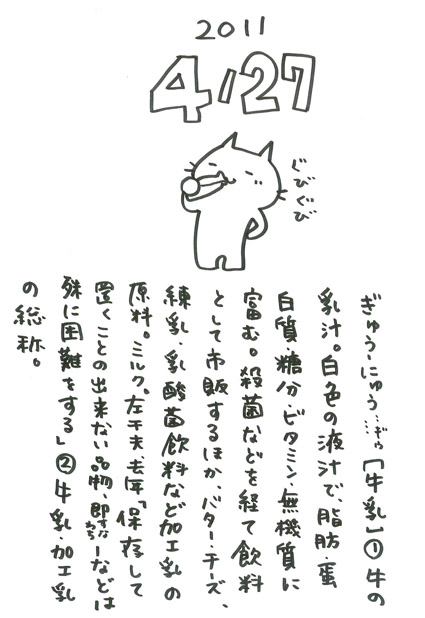 2011
4/27
ぐびぐび
ぎゅう‐にゅう…ギウ【牛乳】①牛の
乳汁。白色の液汁で、脂肪・蛋
白質・糖分・ビタミン・無機質に
富む。殺菌などを経て飲料
として市販するほか、バター・チーズ、
練乳・乳酸菌飲料など加工乳の
原料。ミルク。左千夫、去年「保存して
置くことの出来ない品物、即(すなわち)ーなどは
殊に困難をする」②牛乳・加工乳
の総称。